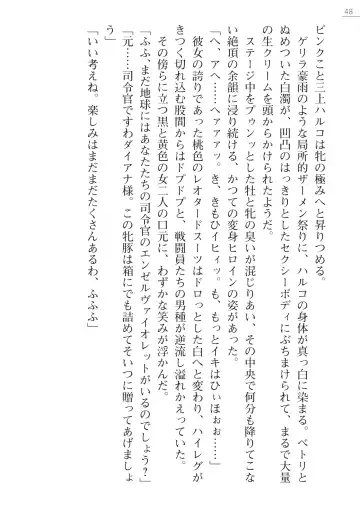 48
ピンクこと三上ハルコは牝の極みへと昇りつめる。
ゲリラ豪雨のような局所的ザーメン祭りに、ハルコの身体が真っ白に染まる。ベトリと
ぬめついた白濁が、凹凸のはっきりとしたセクシーボディにぶちまけられて、まるで大量
の生クリームを頭からかけられたようだ。
ステージ中をプゥンッとした牡と牝の臭いが混じりあい、その中央で何分も降りてこな
い絶頂の余韻に浸り続ける、かつての変身ヒロインの姿があった。
「へ、アへ……へァァァァ。き、きもひイヒィッ。も、もっとイキはひぃほぉぉ……」
彼女の誇りであった桃色のレオタードスーツはドロっとした白へと変わり、ハイレグが
きつく切れ込む股間からはドプドプと、戦闘員たちの男種が逆流し溢れかえっていた。
その傍らに立つ黒と黄色の女二人の口元に、わずかな笑みが浮かんだ。
「ふふ、まだ地球にはあなたたちの司令官のエンゼルヴァイオレットがいるのでしょう？」
「元……司令官ですわダイアナ様。この牝豚は箱にでも詰めてそいつに贈ってあげましょ
う」
「いい考えね。楽しみはまだまだたくさんあるわ、ふふふ」